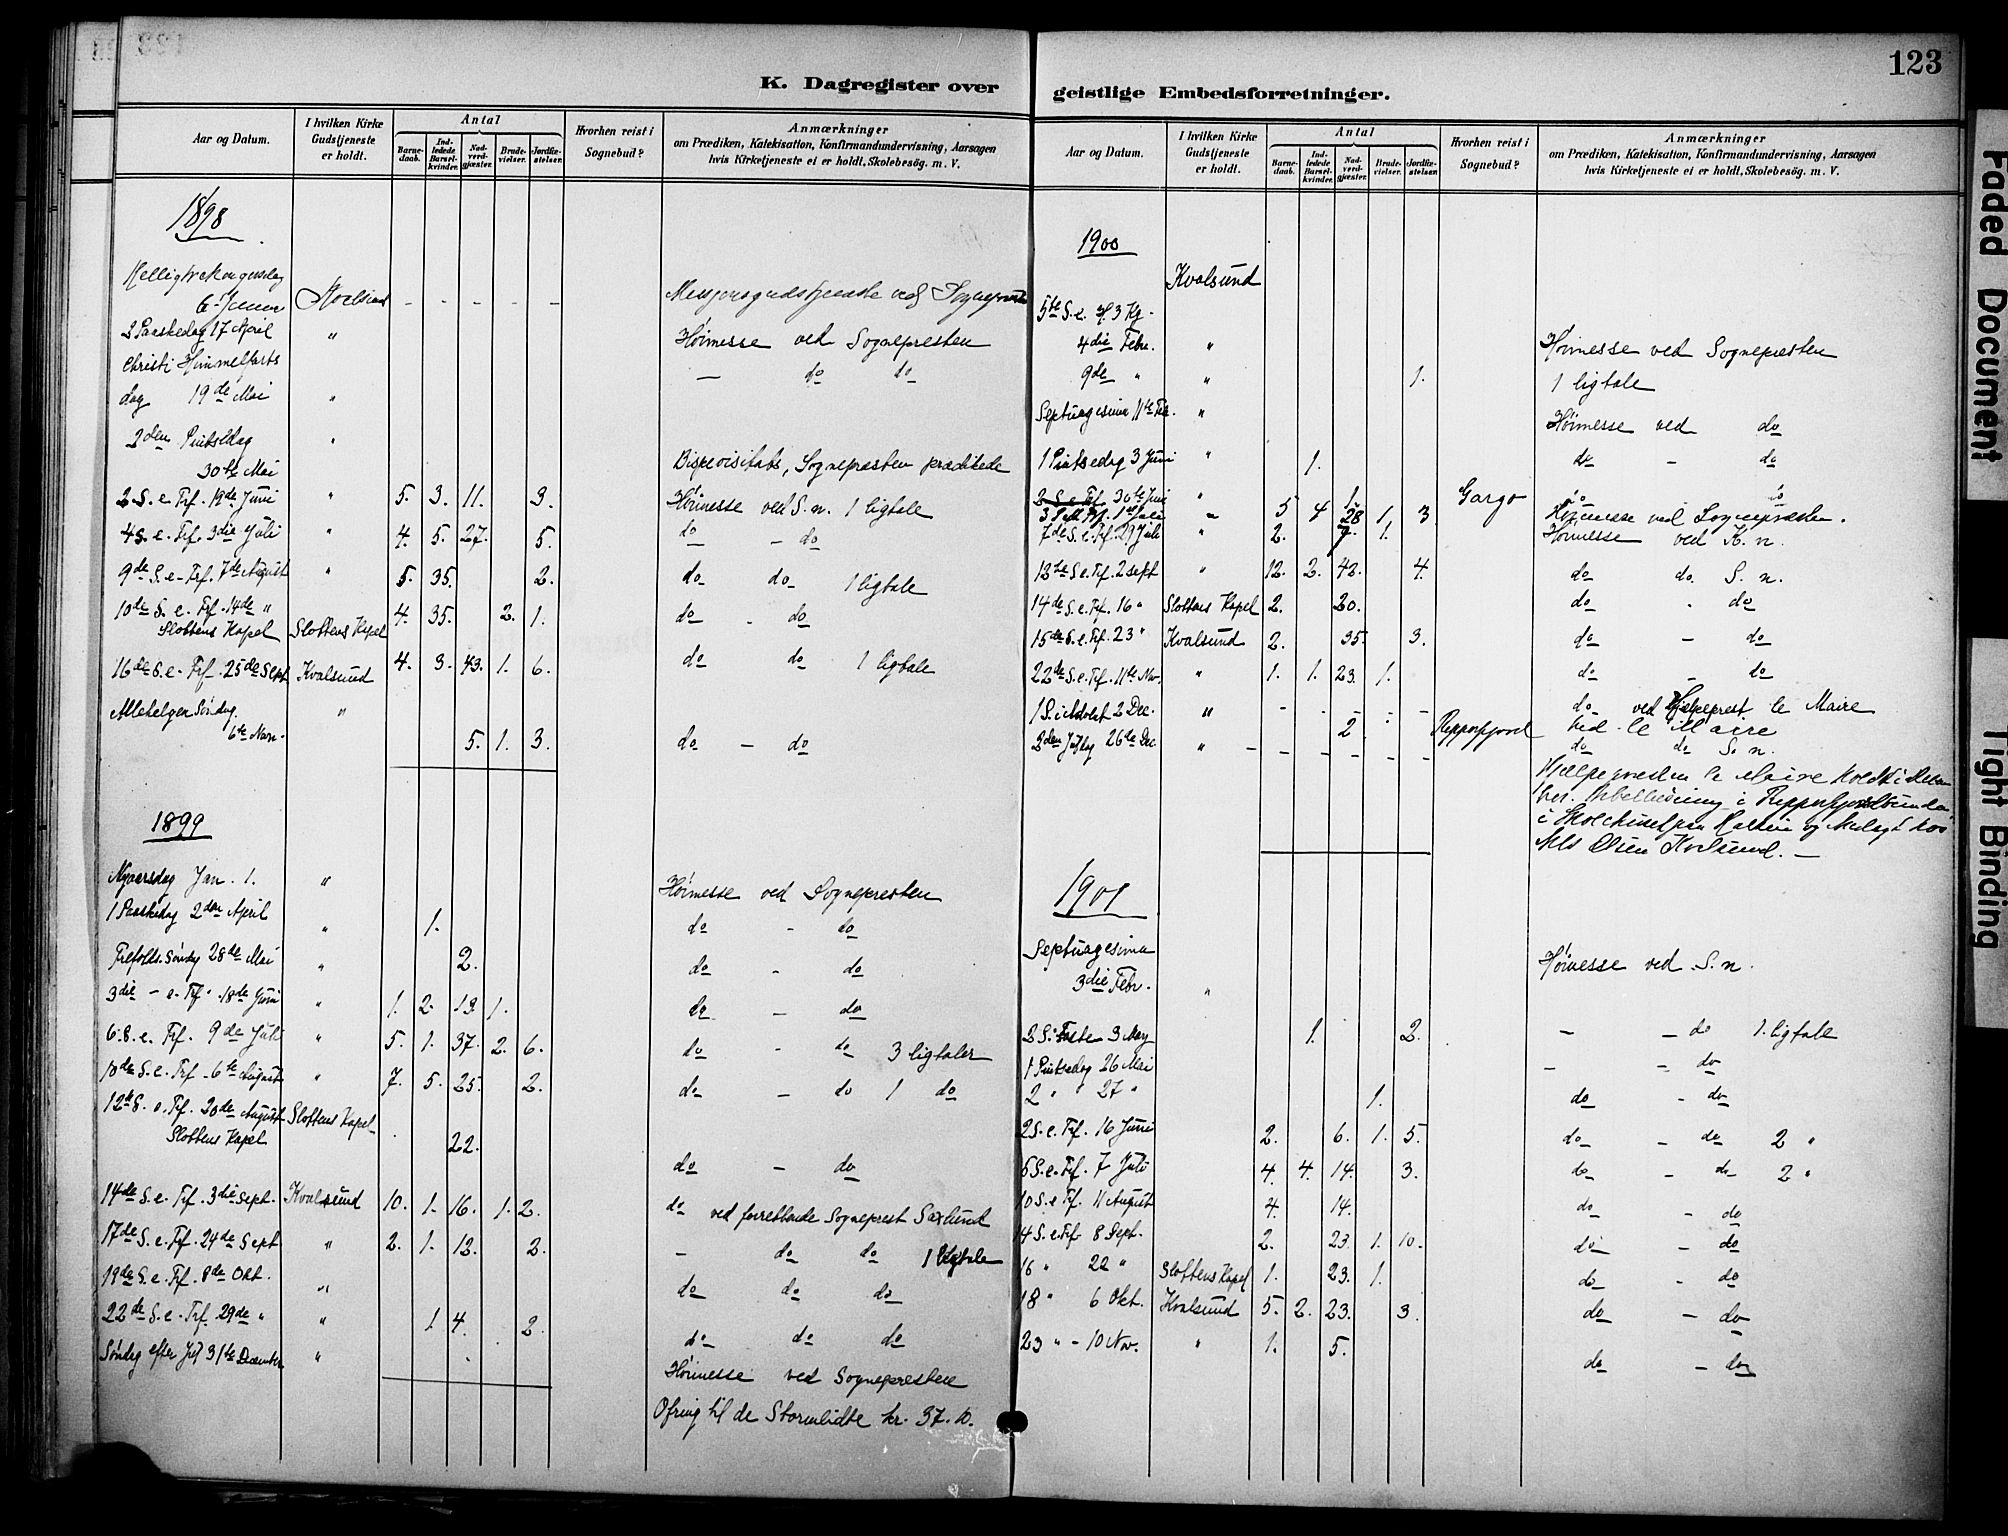 123
K. Dagregister over geistlige Embedsforretninger.
Aar og Datum. I hvilken Kirke Gudstjeneste er holdt. Antal Barne-daab. Ind-ledede Barsel-kvinder. Nad-verd-gjæster. Brude-vielser. Jordfæ-stelser. Hvorhen reist i Sognebud? Anmærkninger om Prædiken, Katekisation, Konfirmandundervisning, Aarsagen hvis Kirketjeneste ei er holdt, Skolebesög. m. V.
1898
Helligtrekongersdag
6 - - - - - ved
2 Paaskedag 17 April " Høimesse ved Sognepresten
Christi Himmelfarts
dag 19de Mai " — do do
2den Pintsedag "
30te Mai Bispevisitats, Sognepræsten prædikede
2 S. e. Trf. 19de Juni " 5. 3. 11. 3. Høimesse ved S. n. 1 ligtale
4 S. e. Trf. 3die Juli " 4. 5. 27. 5. do - do
9de S. e. Trf. 7de August " 5. 35. 2. do do 1 ligtale
10de S. e. Trf. 14de "
Slottens Kapel Slottens Kapel 4. 35. 2. 1. do - do
16de S. e. Trf. 25de Sept. Kvalsund 4. 3. 43. 1. 6. do do 1 ligtale
Allehelgen Søndag "
6te Nov. 5. 1. 3. do - do
1899
Nyaarsdag Jan. 1. " Høimesse ved Sognepresten
1 Paaskedag 2den April " 1. do - do
Trefolds. Søndag 28de Mai " 2. do - do
3die - e. Trf. 18de Juni " 1. 2. 13. 1. do - do
6 S. e. Trf. 9de Juli " 5. 1. 37. 2. 6. do - do 3 ligtaler
10de S. e. Trf. 6te August " 7. 5. 25. 2. do - do 1 do
12te S. e. Trf. 20de August Slottens Kapel
Slottens Kapel 22. do - do
14de S. e. Trf. 3die Sept. Kvalsund 10. 1. 16. 1. 2. do ved forrettende Sogneprest Saxlund
17de S. e. Trf. 24de Sept " 2. 1. 12. 2. - do do 1 ligtale
19de S. e. Trf. 8de Okt. " do do do
22de S. e. Trf. 29de " " 1 4. 2. do do do
Søndag efter Jul 31te December " Høimesse ved Sognepresten
Ofring til de kr. 37.10.
Aar og Datum. I hvilken Kirke Gudstjeneste er holdt. Antal Barne-daab. Ind-ledede Barsel-kvinder. Nad-verd-gjæster. Brude-vielser. Jordfæ-stelser. Hvorhen reist i Sognebud? Anmærkninger om Prædiken, Katekisation, Konfirmandundervisning, Aarsagen hvis Kirketjeneste ei er holdt, Skolebesög. m. V.
1900
Kvalsund
5te S. e. H. 3 Kg.
4die Febr. " Høimesse ved Sognepræsten
9de " " 1. 1 ligtale
Septuagesima 11te Feb. " Høimesse ved do
1 Pintsedag 3 Juni " 1. do - do
2 S. e. Trf. 30te Juni " 1 Gargo do do
3 1ste Juli 5 4 28 1. 3 Høimesse ved Sognepræsten.
7de S. e. Trf. 29 Juli " 2. 7. 1. Høimesse ved K. n.
12te S. e. Trf. 2 sept " 12. 2. 42. 4. do do. S. n.
14de S. e. Trf. 16 " Slottens Kapel 2. 20. do - do
15de S. e. Trf. 23 " Kvalsund 2. 35. 3. do - do
22de S. e. Trf. 11te Nov. " 1. 1. 23. 1. do - do
1 S. i Advent 2 Dec. " - - - - - do ved Hjelpeprest le Maire
2 Repparfjord ved le Maire
2den Juledag 26de Dec " - - - - - do do S. n.
Hjælpepresten le Maire holdt i
i
i og hos
Nils Olsen Kvalsund. —
1901
Septuagesima Høimesse ved S. n.
3die Febr. "
2 S. i Faste 3 Marz 1. 2. - - do 1. ligtale
1 Pintsedag 26 Mai - - do
2 " 27 " 1. do - do
2 S. e. Trf. 16 Juni 2. 6. 1. 5. do - do 2 "
5 S. e. Trf. 7 Juli 4. 4. 14. 3. do - do 2 "
10 S. e. Trf. 11 August 4. 14. do - do
14 S. e. Trf. 8 Sept. 2. 23. 1. 10. do - do
16 " 22 " Slottens Kapel 1. 23. 1. do - do
18 " 6 Okt. Kvalsund 5. 2. 23. 3. do - do
23 " - 10 Nov. " 1. 5. do - do
Faded Document
Tight Binding